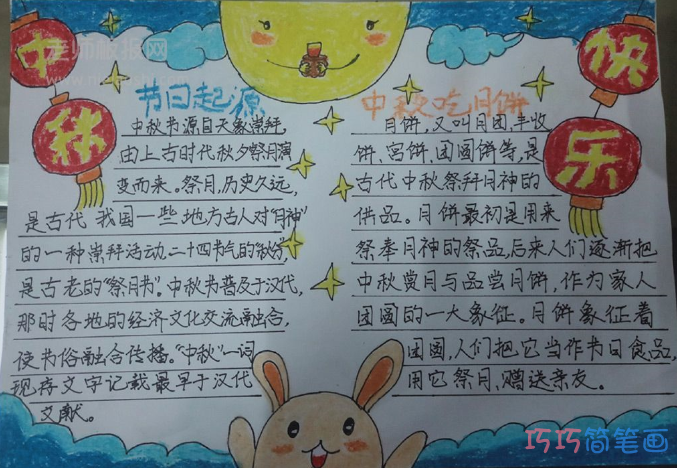 中
秋
快
乐
老师板报网
节日起源
中秋节源自天象崇拜,
由上古时代秋夕祭月演
变而来。祭月,历史久远,
是古代 我国一些地方古人对“月神”
的一种崇拜活动,二十四节气的“秋分”
是古老的“祭月节”。中秋节普及于汉代,
那时各地的经济文化交流融合,
使节俗融合传播。“中秋”一词
现存文字记载最早于汉代
文献。
中秋吃月饼
月饼,又叫月团、丰收
饼、宫饼、团圆饼等,是
古代中秋祭拜月神的
供品。月饼最初是用来
祭奉月神的祭品,后来人们逐渐把
中秋赏月与品尝月饼,作为家人
团圆的一大象征。月饼象征着
团圆,人们把它当作节日食品,
用它祭月、赠送亲友。
巧巧简笔画